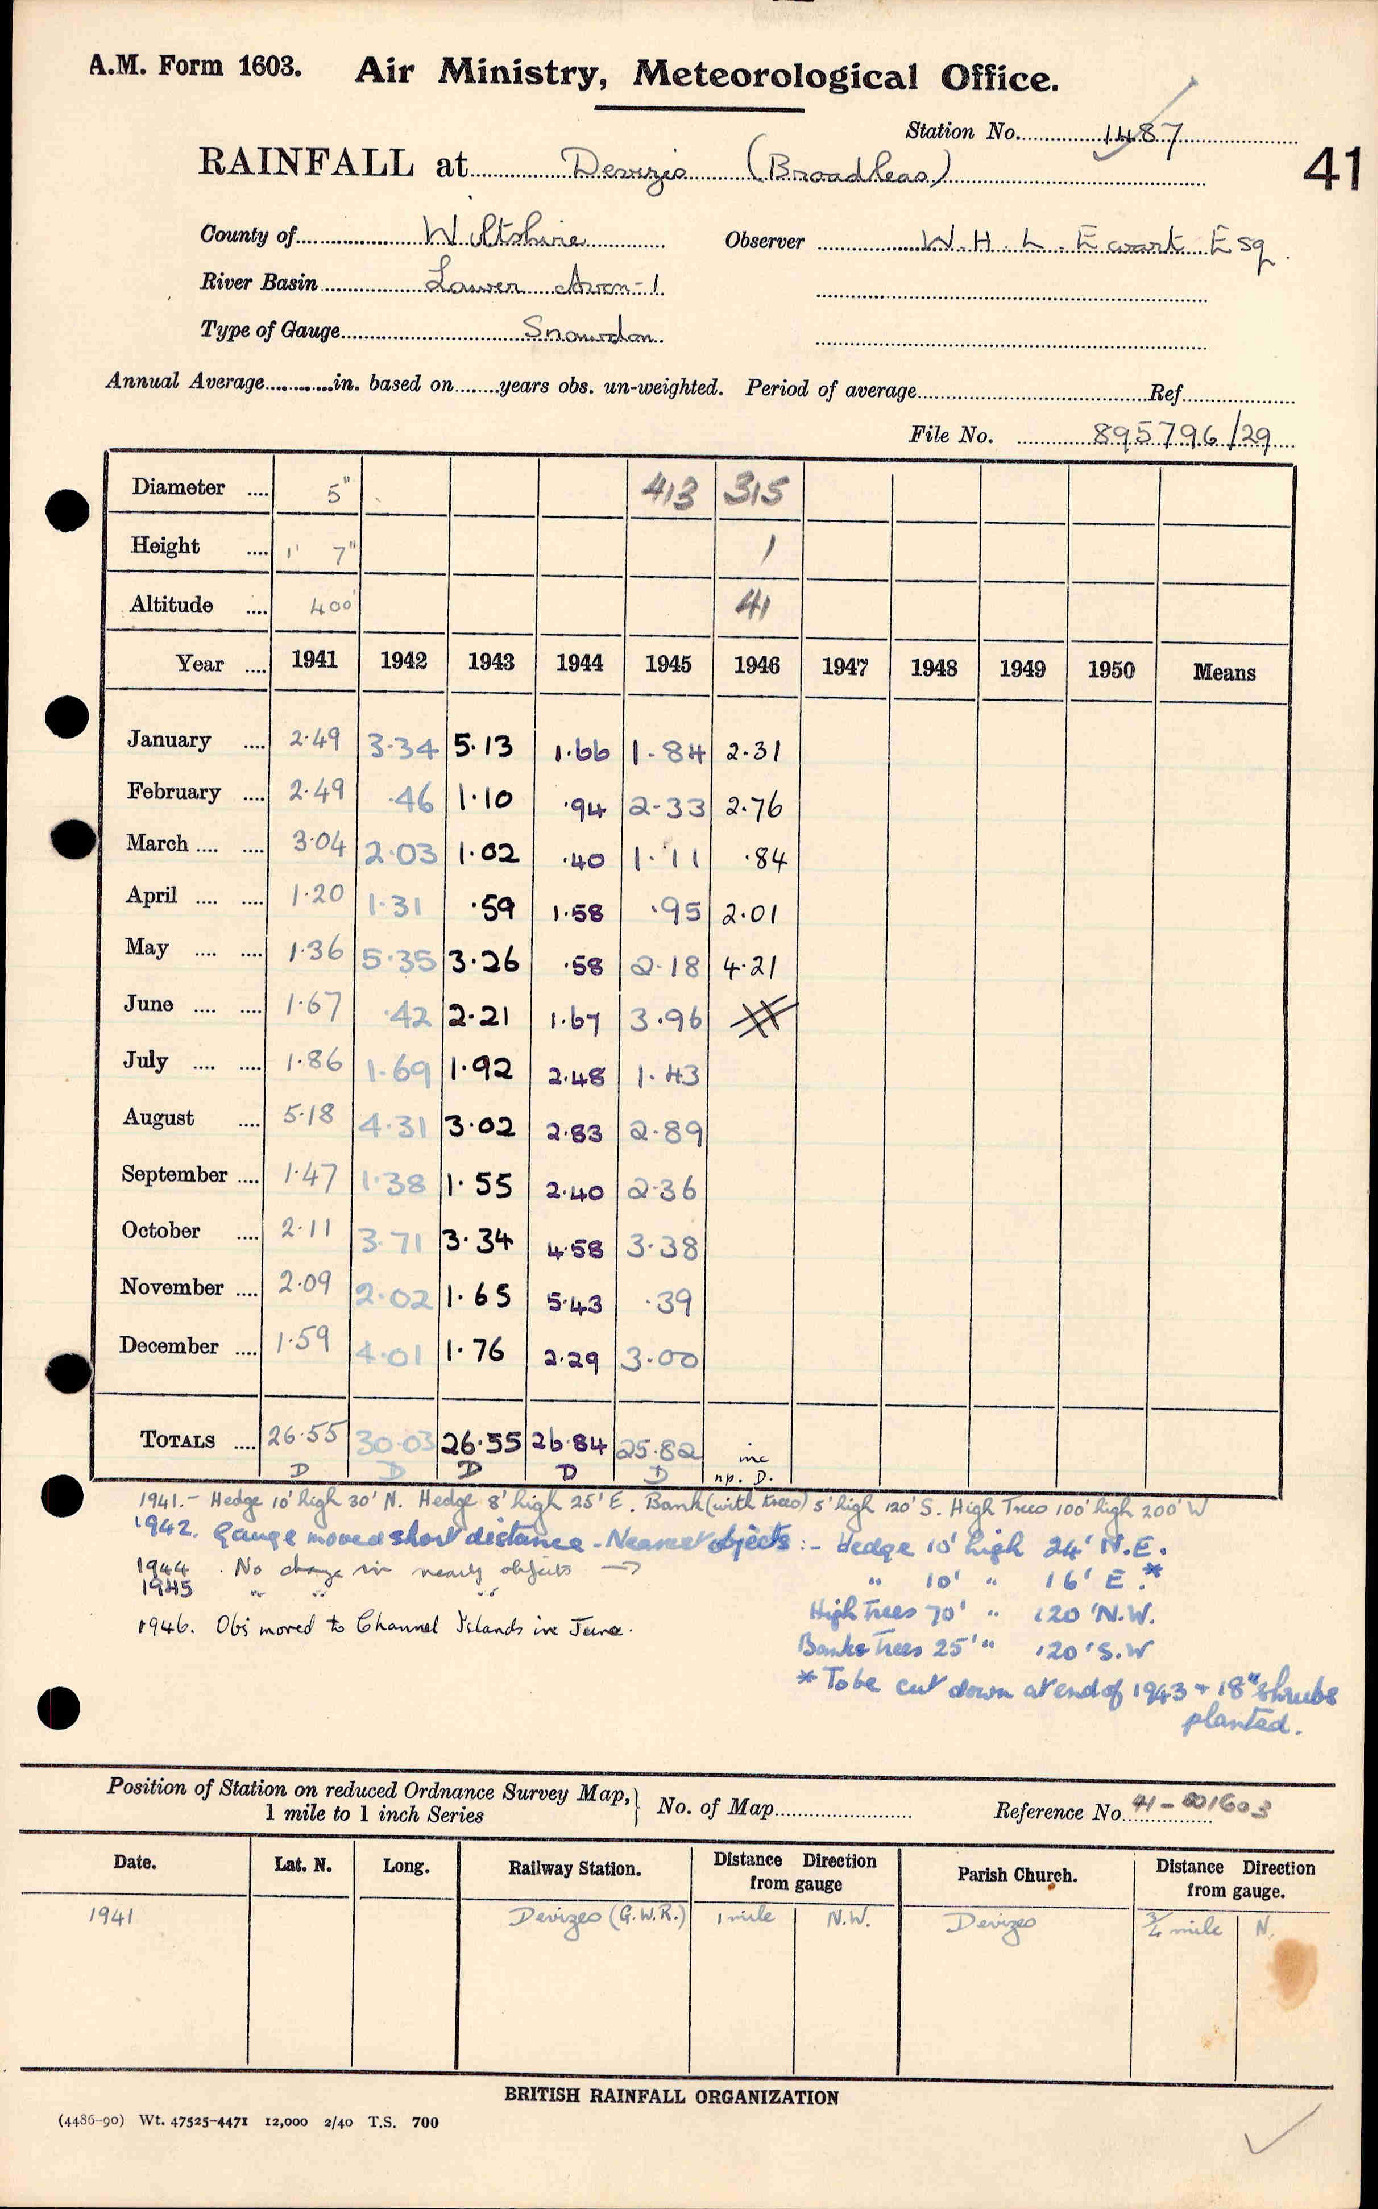 A.M. Form 1603. Air Ministry, Meteorological Office.
Station No. 1487
RAINFALL at Devizes (Broadleas)
41
County of Wiltshire Observer W. H. L. Ewart Esq.
River Basin Lower Avon-1
Type of Gauge Snowdon
Annual Average in. based on years obs. un-weighted. Period of average Ref
File No. 895796/29
Diameter 5" 413 315
Height 1' 7" 1
Altitude 400' 41
Year 1941 1942 1943 1944 1945 1946 1947 1948 1949 1950 Means
January 2.49 3.34 5.13 1.66 1.84 2.31
February 2.49 .46 1.10 .94 2.33 2.76
March 3.04 2.03 1.02 .40 1.11 .84
April 1.20 1.31 .59 1.58 .95 2.01
May 1.36 5.35 3.26 .58 2.18 4.21
June 1.67 .42 2.21 1.67 3.96
July 1.86 1.69 1.92 2.48 1.43
August 5.18 4.31 3.02 2.83 2.89
September 1.47 1.38 1.55 2.40 2.36
October 2.11 3.71 3.34 4.58 3.38
November 2.09 2.02 1.65 5.43 .39
December 1.59 4.01 1.76 2.29 3.00
TOTALS 26.55 30.03 26.55 26.84 25.82 inc
D D D D D np. D.
1941.- Hedge 10' high 30' N. Hedge 8' high 25' E. Bank (with trees) 5' high 120' S. High Trees 100' high 200' W
1942. Gauge moved short distance - Nearest objects :- Hedge 10' high 24' N.E.
1944 No change in nearby objects →
" 10' " 16' E.*
1945 " " "
High Trees 70' " 120' N.W.
1946. Obs moved to Channel Islands in June.
Banks Trees 25' " 120' S.W
* To be cut down at end of 1943 + 18" shrubs
planted.
Position of Station on reduced Ordnance Survey Map, 1 mile to 1 inch Series } No. of Map Reference No. 41-001603
Date. Lat. N. Long. Railway Station. Distance Direction from gauge Parish Church. Distance Direction from gauge.
1941 Devizes (G.W.R.) 1 mile N.W. Devizes 3/4 mile N.
BRITISH RAINFALL ORGANIZATION
(4486-90) Wt. 47525-4471 12,000 2/40 T.S. 700